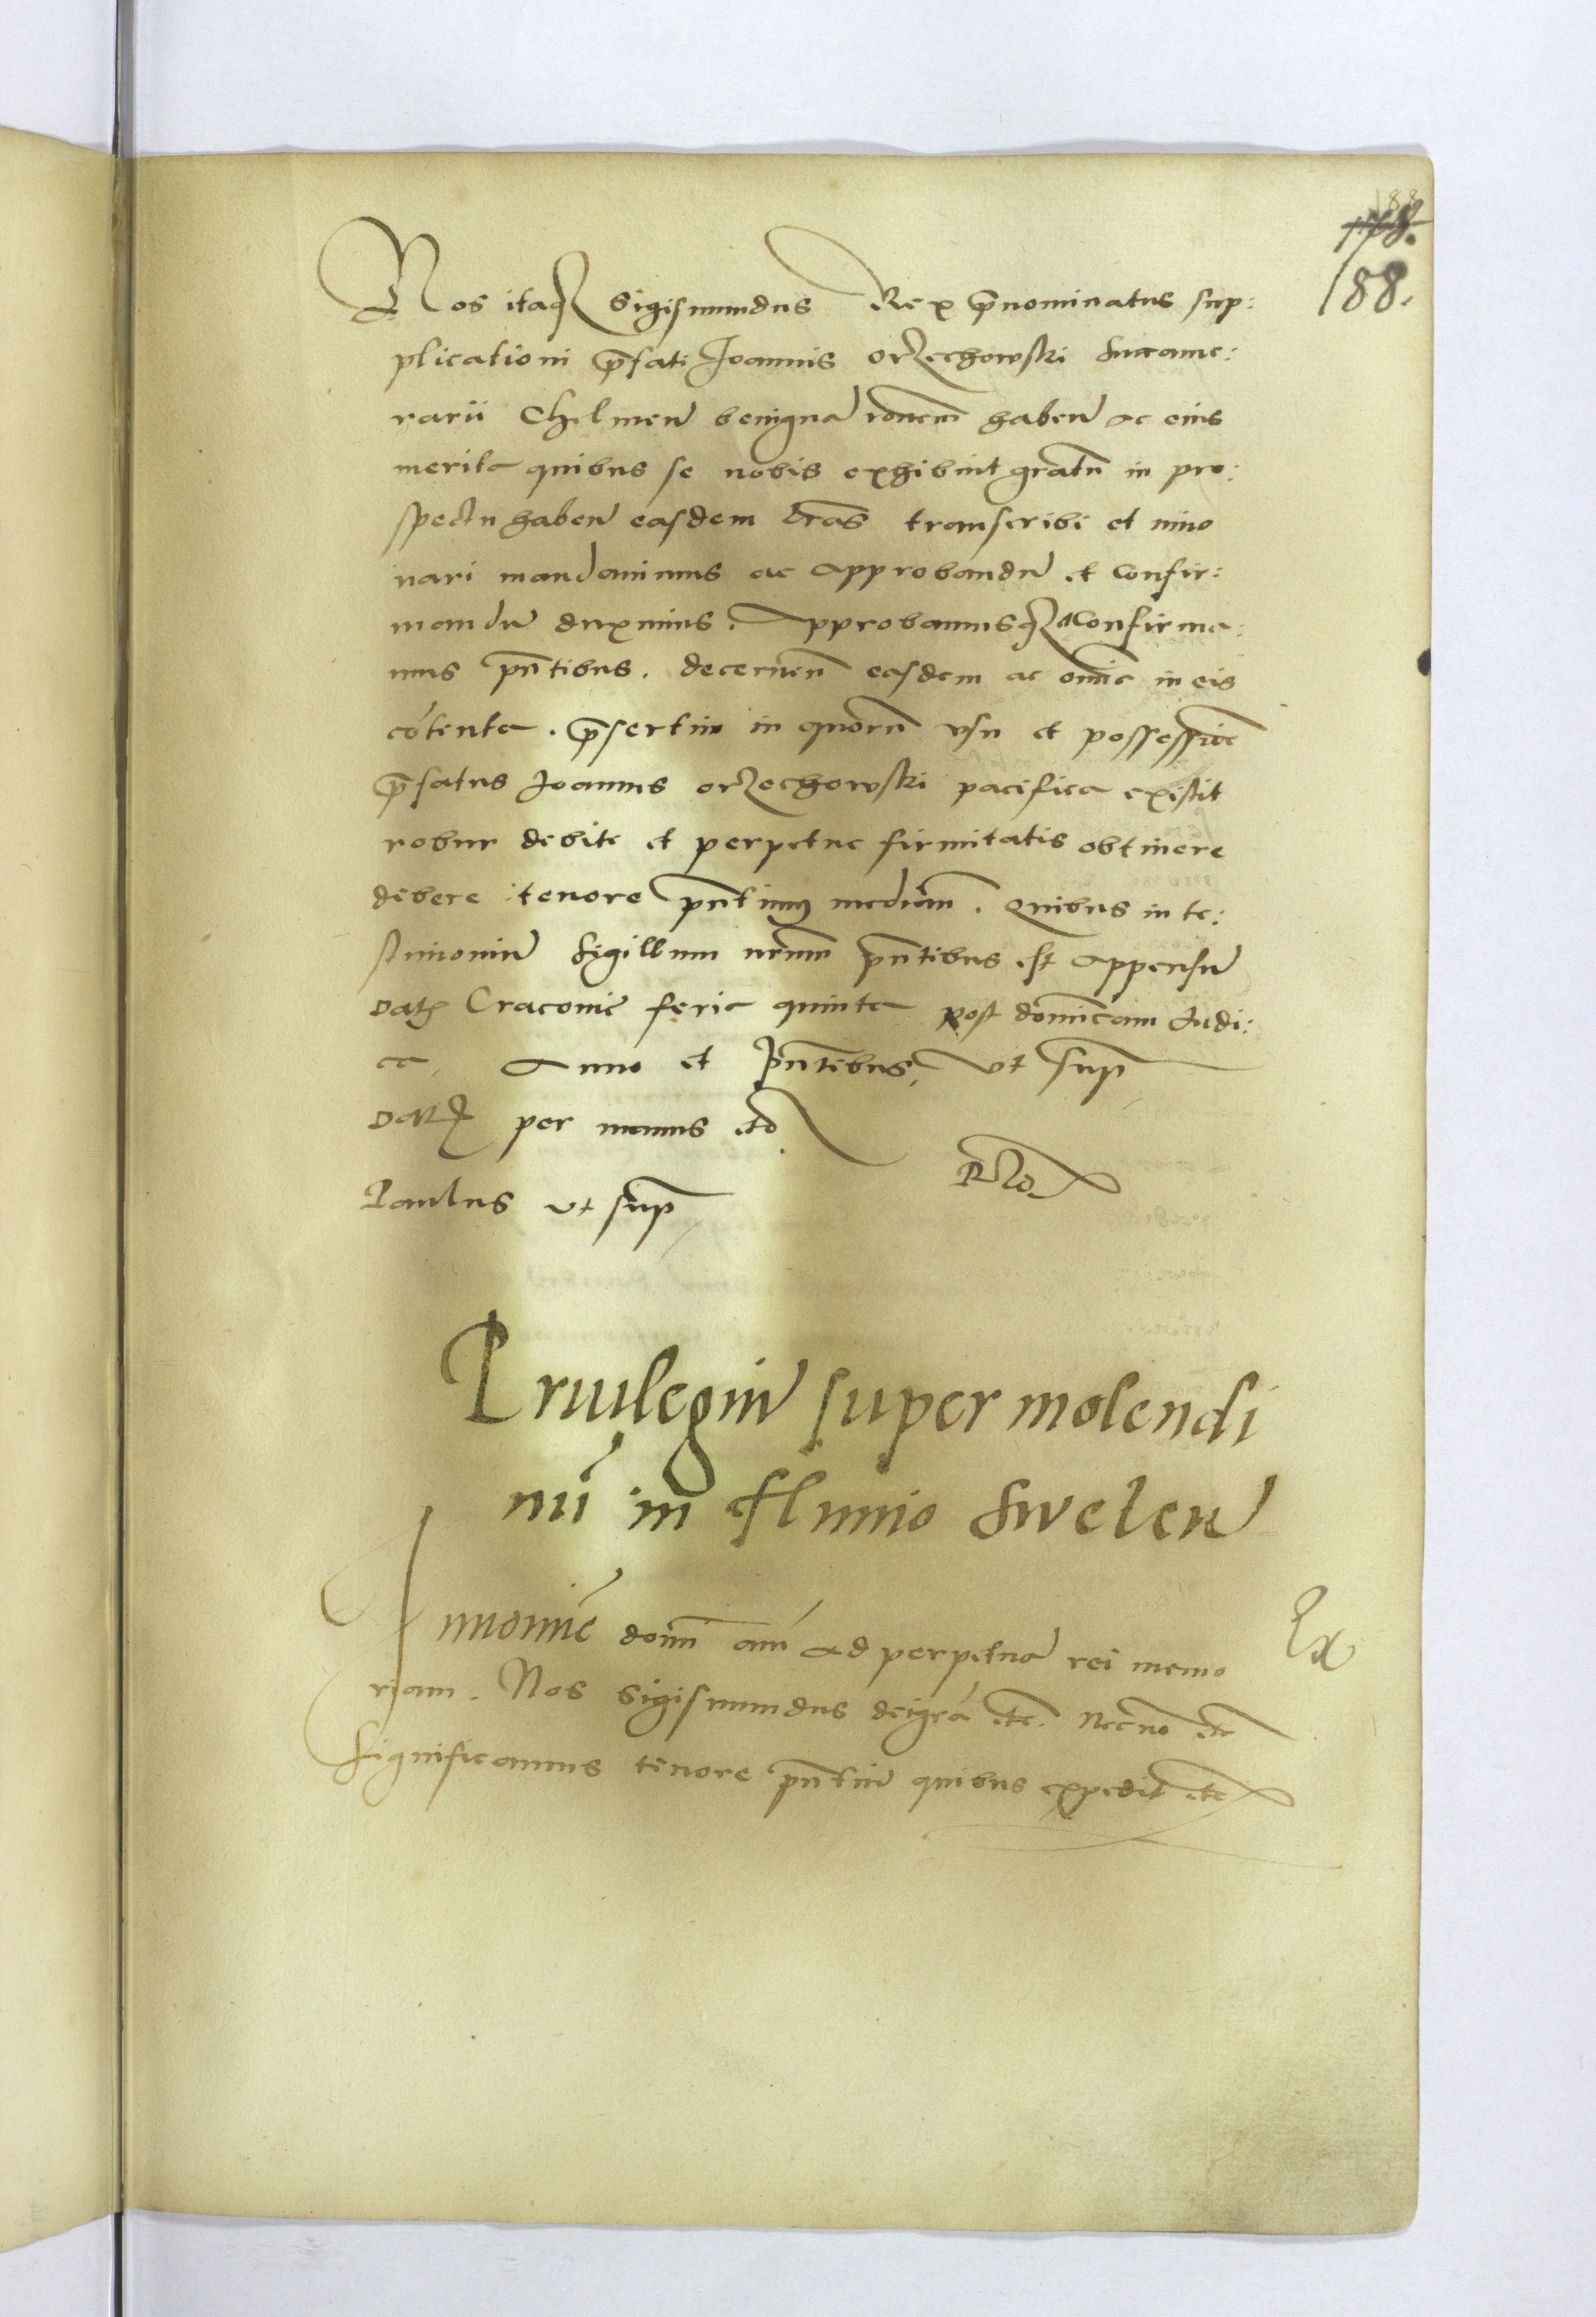 188
178.
188.
Nos itaq; Sigismundus Rex p̄nominatus sup:
plicationi p̄fati Joannis orzechowski Succame:
rarii Chelmeñ benignã ronem̃ habeñ ac eius
merita quibus se nobis exhibuit gratũ in pro:
spectu habeñ easdem lr̃as transcribi et inno
uari mandauimus ac approbandũ et confir:
mandũ duximus. Approbamusq; ac confirma:
mus pn̄tibus. decerneñ easdem ac om̃ia in eis
cõtenta. p̄sertim in quorũ vsu et possessiõe
p̄fatus Joannes orzechowski pacifica existit
robur debite et perpetue firmitatis obtinere
debere tenore pn̄tium mediañ. Quibus in te:
stimoniũ sigillum nr̃um pn̄tibus est appensũ
Datũ Cracouie feria quinta post dominicam Judi:
ca, Anno et pn̄tibus, vt sup̃
Datũ per manus etc̃
Paulus vt sup̃
Priuilegiũ super molendi
nũ in fluuio Swelen
In nomĩe domĩ amẽ ad perpetuã rei memo
Ex
riam. Nos Sigismundus dei gr̃a etc. Necnõ etc
Significamus tenore pn̄tiũ quibus expedit etc